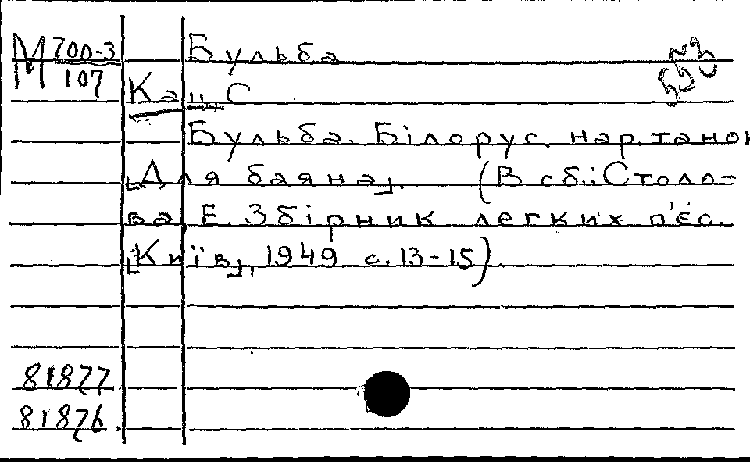 М 700-3 Бульба
107
Кац С
Бульба. Білорус. нар. танок
[Для баяна]. (В сб.: Столо-
ва Е. Збірник легких п'єс.
[Київ], 1949 с. 13-15)
81877
81876.